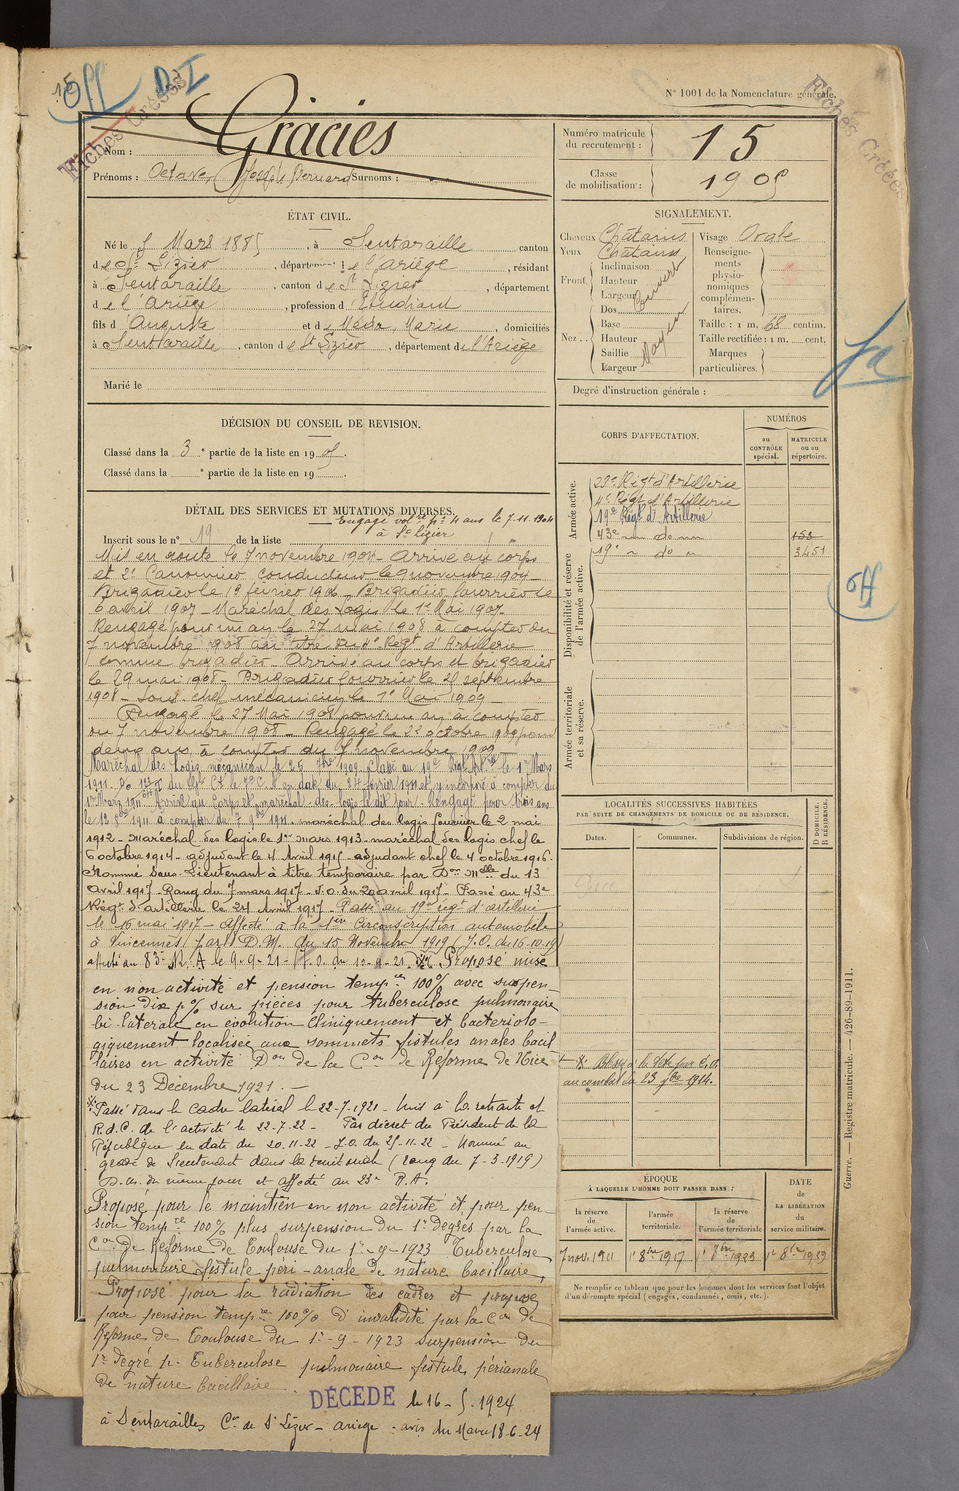 15 Off D.I
Fiches Créées
N° 1001 de la Nomenclature générale.
Fiches Créées
Gràciès
Nom :
Prénoms : Octave, Joseph Bernard Surnoms :
Numéro matricule du recrutement : 15
Classe de mobilisation : 1905
ÉTAT CIVIL.
Né le 5 Mars 1885, à Sentaraille canton
de St Lizier, département de l'Ariège, résidant
à Sentaraille, canton de St Lizier, département
de l'Ariège, profession d'Etudiant
fils d'Auguste et de Marie, domiciliés
à Sentaraille, canton de St Lizier, département de l'Ariège
Marié le
SIGNALEMENT.
Cheveux Châtains
Yeux Châtains
Front
Inclinaison
Hauteur
Largeur
Couvert
Nez
Dos
Base
Hauteur
Saillie
Largeur
Moyen
Visage Ovale
Renseignements physionomiques complémentaires.
Taille : 1 m. 68 centim.
Taille rectifiée : 1 m. cent.
Marques particulières.
Degré d'instruction générale :
DÉCISION DU CONSEIL DE REVISION.
Classé dans la 3e partie de la liste en 1905.
Classé dans la e partie de la liste en 19 .
CORPS D'AFFECTATION.
NUMÉROS
au CONTRÔLE spécial.
MATRICULE ou au répertoire.
Armée active.
23e Régt d'Artillerie
4e Régt d'Artillerie
19e Régt d'Artillerie
43e
19e
3451
Disponibilité et réserve de l'armée active.
Armée territoriale et sa réserve.
DÉTAIL DES SERVICES ET MUTATIONS DIVERSES.
Engagé volre pr 4 ans le 7.11.1904
à St Lizier
Inscrit sous le n° 19 de la liste
Mis en route le 7 novembre 1904 - Arrivé au corps
et 2e Canonnier conducteur le 9 novembre 1904 -
Brigadier le 1er février 1906 - Brigadier fourrier le
6 avril 1907 - Maréchal des Logis le 1er Mai 1907
Rengagé pour un an le 27 mai 1908 à compter du
7 novembre 1908 au titre du 4e Régt d'Artillerie
comme brigadier - Arrivé au corps et brigadier
le 29 mai 1908 - Brigadier fourrier le 21 septembre
1908 - Sous-chef mécanicien le 1er Mai 1909
Rengagé le 27 Mai 1908 pour un an à compter
du 7 novembre 1908 - Rengagé le 22 octobre 1909 pour
deux ans à compter du 7 novembre 1909
Maréchal des Logis mécanicien le 25 7bre 1909
le 12 8bre 1911 à compter du 7 9bre 1911 - maréchal des logis fourrier le 2 mai
1912 - maréchal des logis le 1er mars 1913 - maréchal des logis chef le
6 octobre 1914 - adjudant le 4 Avril 1915 - adjudant chef le 4 octobre 1916.
Nommé Sous-Lieutenant à titre temporaire par Don Mlle du 13
avril 1917 - Rang du 7 mars 1917 - J.O. du 20 avril 1917 - Passé au 43e
Régt d'artillerie le 24 Avril 1917 - Passé au 19e régt d'artillerie
le 16 mai 1917 - Affecté à la 1ère Circonscription automobile
à Vincennes par D.M. du 15 Novembre 1919 (J.O. du 16.10.19)
affecté au 83e R.A le 9-9-21 - Proposé mise
en non activité et pension tempre 100% avec suspension
sur pièces pour tuberculose pulmonaire
bi-latérale en évolution cliniquement et bactériologiquement
localisée aux sommets fistules anales bacillaires
en activité Don de la Con de Réforme de Nice
du 23 Décembre 1921. -
Passé dans le cadre latéral le 22-7-1921 - Mis à la retraite et
R.d.C. de l'activité le 22.7.22 - Par décret du Président de la
République en date du 20.11.22 - J.O. du 25.11.22 - Nommé au
grade de Lieutenant dans la territoriale (rang du 7-3-1919)
D. M. du même jour et affecté au 23e R.A.
Proposé pour le maintien en non activité et pour pension
tempre 100% plus suspension du 1er degrés par la
Con de Réforme de Toulouse du 1er-9-1923 Tuberculose
pulmonaire fistule péri-anale de nature bacillaire,
Proposé pour la radiation des cadres et proposé
pour pension tempre 100% d'invalidité par la Con de
Réforme de Toulouse du 1er-9-1923 suspension du
1er degré pr Tuberculose pulmonaire fistule périanale
de nature bacillaire
DÉCÉDÉ le 16-5-1924
à Sentarailles Con de St Lizier - ariège - avis du Maire 18-6-24
LOCALITÉS SUCCESSIVES HABITÉES
PAR SUITE DE CHANGEMENTS DE DOMICILE OU DE RÉSIDENCE.
Dates.
Communes.
Subdivisions de région.
D DOMICILE. R RÉSIDENCE.
Blessé à la tête par E.O.
au combat du 23 1914.
ÉPOQUE
À LAQUELLE L'HOMME DOIT PASSER DANS :
la réserve de l'armée active.
l'armée territoriale.
la réserve de l'armée territoriale
DATE de LA LIBÉRATION du service militaire.
7 nov. 1911
1er 8bre 1917
1er 8bre 1923
1er 8bre 1929
Ne remplir ce tableau que pour les hommes dont les services font l'objet
d'un décompte spécial (engagés, condamnés, omis, etc.).
Guerre. — Registre matricule. — 426-89-1911.
Off